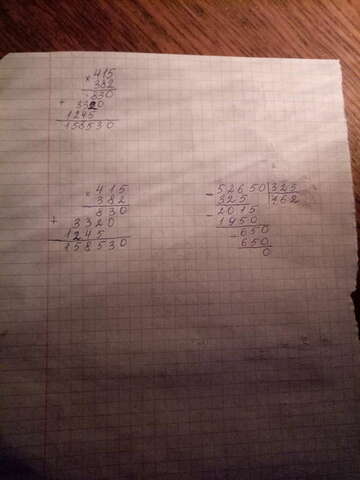 × 415
382
830
+ 3320
1245
158530
× 415
382
830
+ 3320
1245
158530
- 52650 | 325
325 | 162
- 2015
1950
- 650
650
0